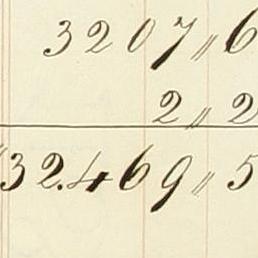 3207 〃 6
2 〃 2
32.469 〃 5